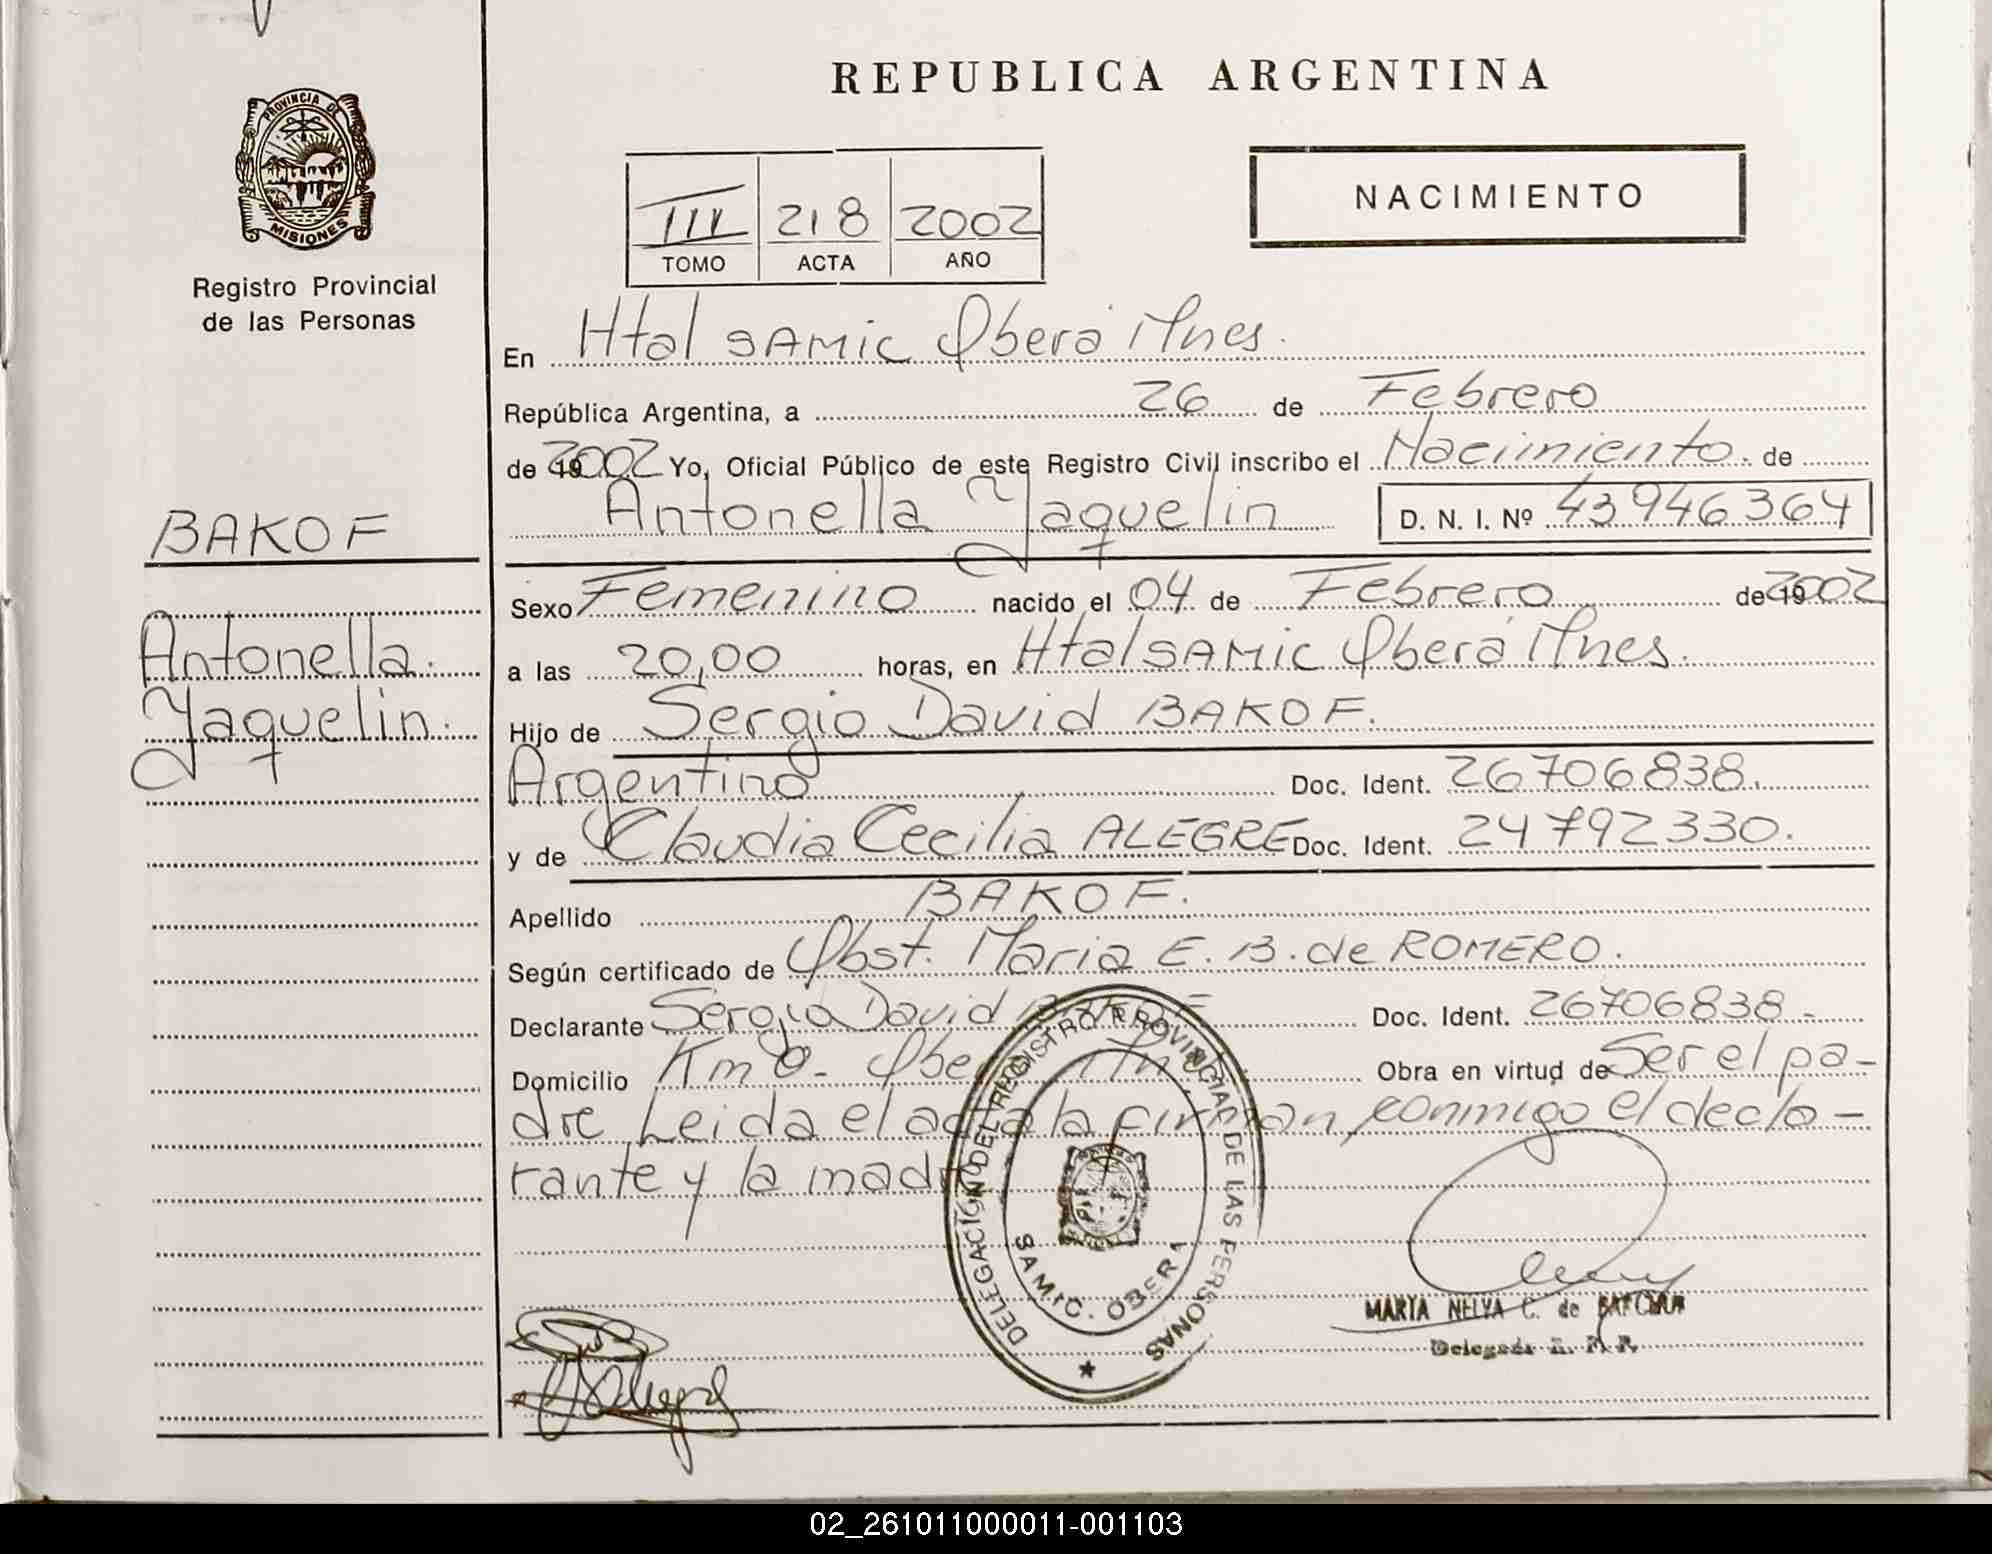 REPUBLICA ARGENTINA
PROVINCIA DE
MISIONES
Registro Provincial
de las Personas
III 218 2002
TOMO ACTA AÑO
NACIMIENTO
En Htal SAMIC Oberá Mnes.
República Argentina, a 26 de Febrero
de 2002 Yo, Oficial Público de este Registro Civil inscribo el Nacimiento de
Antonella Yaquelin D. N. I. Nº 43946364
BAKOF
Antonella
Yaquelin.
Sexo Femenino nacido el 04 de Febrero de 2002
a las 20,00 horas, en Htal SAMIC Oberá Mnes.
Hijo de Sergio David BAKOF.
Argentino Doc. Ident. 26706838.
y de Claudia Cecilia ALEGRE Doc. Ident. 24792330.
Apellido BAKOF.
Según certificado de Obst. Maria E. B. de ROMERO.
Declarante Sergio David BAKOF Doc. Ident. 26706838.-
Domicilio Km 0- Obera Obra en virtud de Ser el pa-
dre Leida el acta la firman conmigo el decla-
rante y la madre
DELEGACION DEL REGISTRO PROVINCIAL DE LAS PERSONAS
SAMIC. OBERA
MARIA NELVA C. de
Delegada R. P. P.
02_261011000011-001103